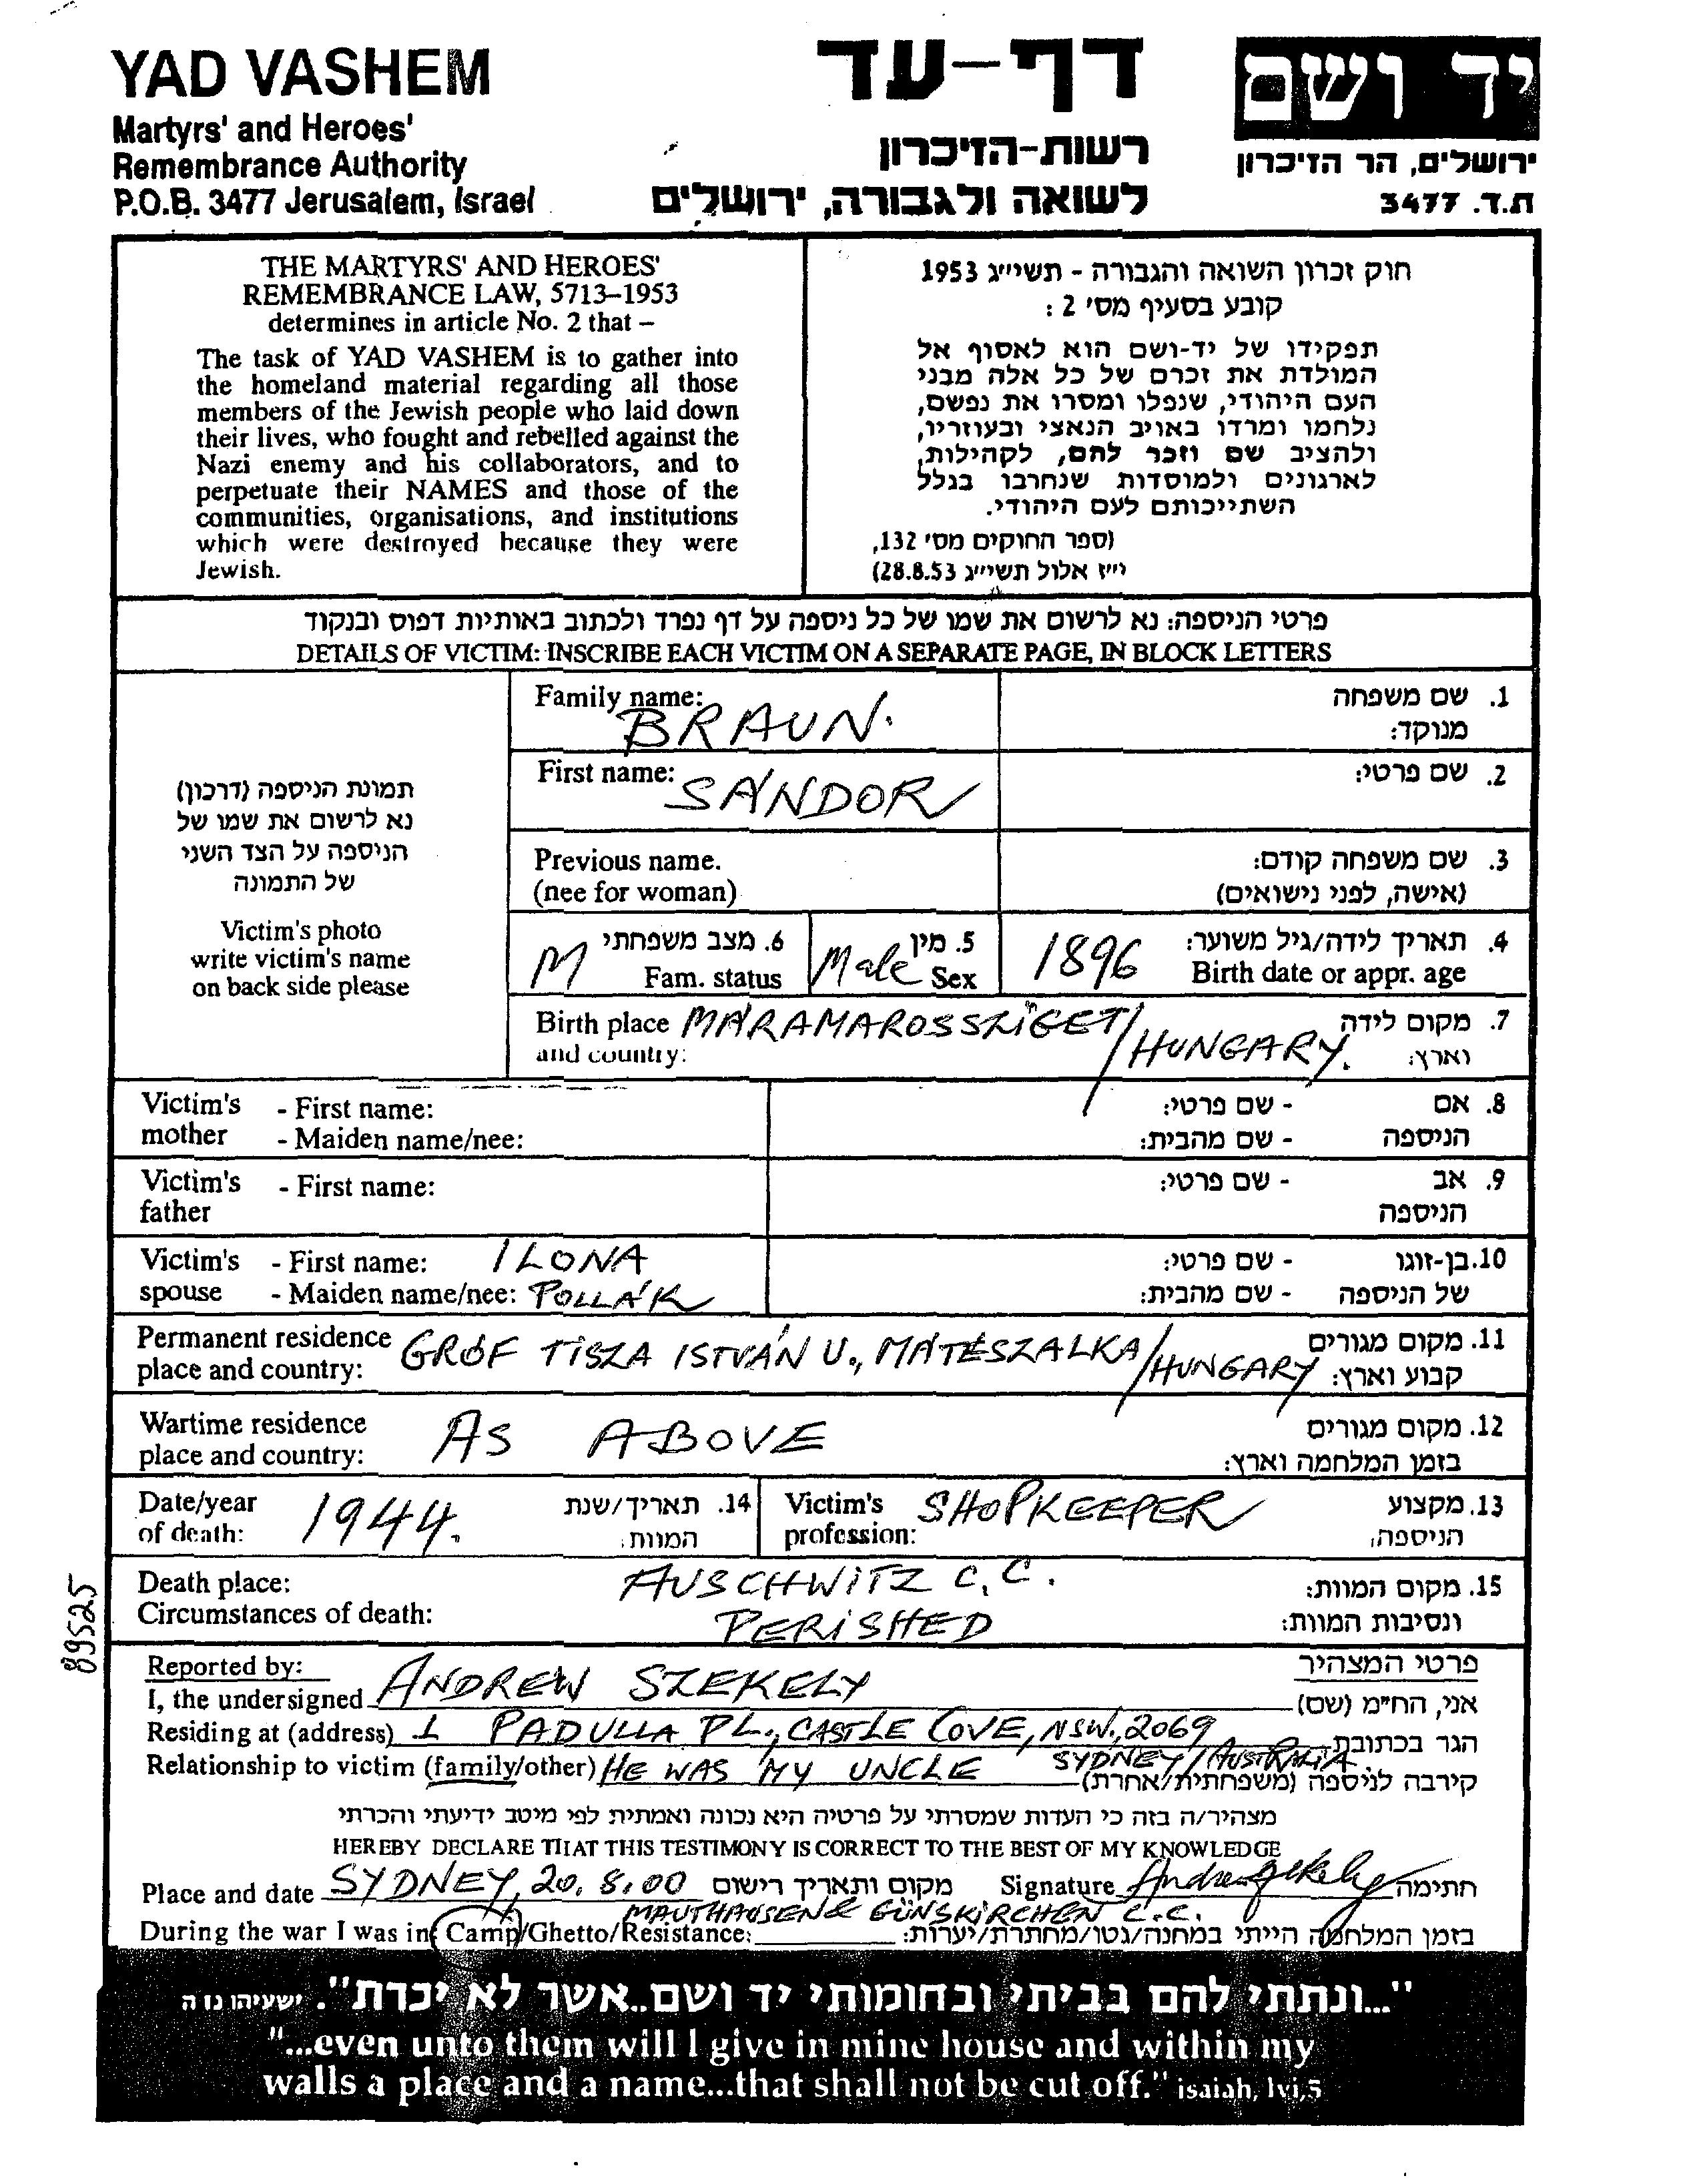 YAD VASHEM
Martyrs' and Heroes'
Remembrance Authority
P.O.B. 3477 Jerusalem, Israel
דף-עד
רשות-הזיכרון
לשואה ולגבורה, ירושלים
יד ושם
ירושלים, הר הזיכרון
ת.ד. 3477
THE MARTYRS' AND HEROES'
REMEMBRANCE LAW, 5713–1953
determines in article No. 2 that –
The task of YAD VASHEM is to gather into
the homeland material regarding all those
members of the Jewish people who laid down
their lives, who fought and rebelled against the
Nazi enemy and his collaborators, and to
perpetuate their NAMES and those of the
communities, organisations, and institutions
which were destroyed because they were
Jewish.
חוק זכרון השואה והגבורה - תשי״ג 1953
קובע בסעיף מס׳ 2 :
תפקידו של יד-ושם הוא לאסוף אל
המולדת את זכרם של כל אלה מבני
העם היהודי, שנפלו ומסרו את נפשם,
נלחמו ומרדו באויב הנאצי ובעוזריו,
ולהציב שם וזכר להם, לקהילות,
לארגונים ולמוסדות שנחרבו בגלל
השתייכותם לעם היהודי.
(ספר החוקים מס׳ 132,
י״ז אלול תשי״ג 28.8.53)
פרטי הניספה: נא לרשום את שמו של כל ניספה על דף נפרד ולכתוב באותיות דפוס ובנקוד
DETAILS OF VICTIM: INSCRIBE EACH VICTIM ON A SEPARATE PAGE, IN BLOCK LETTERS
תמונת הניספה (דרכון)
נא לרשום את שמו של
הניספה על הצד השני
של התמונה
Victim's photo
write victim's name
on back side please
Family name: BRAUN. 1. שם משפחה
מנוקד:
First name: SÁNDOR 2. שם פרטי:
Previous name. 3. שם משפחה קודם:
(nee for woman) (אישה, לפני נישואים)
M 6. מצב משפחתי Male 5. מין 1896 4. תאריך לידה/גיל משוער:
Fam. status Sex Birth date or appr. age
Birth place MÁRAMAROSSZIGET/ 7. מקום לידה
and country: HUNGARY. וארץ:
Victim's - First name: - שם פרטי: 8. אם
mother - Maiden name/nee: - שם מהבית: הניספה
Victim's - First name: - שם פרטי: 9. אב
father הניספה
Victim's - First name: ILONA - שם פרטי: 10. בן-זוגו
spouse - Maiden name/nee: POLLÁK - שם מהבית: של הניספה
Permanent residence GRÓF TISZA ISTVÁN U., MÁTÉSZALKA/ 11. מקום מגורים
place and country: HUNGARY קבוע וארץ:
Wartime residence AS ABOVE 12. מקום מגורים
place and country: בזמן המלחמה וארץ:
Date/year 1944. 14. תאריך/שנת Victim's SHOPKEEPER 13. מקצוע
of death: המוות: profession: הניספה:
Death place: AUSCHWITZ C.C. 15. מקום המוות:
Circumstances of death: PERISHED ונסיבות המוות:
89525
Reported by: פרטי המצהיר
I, the undersigned ANDREW SZEKELY אני, הח״מ (שם)
Residing at (address) 1 PADULLA PL., CASTLE COVE, NSW., 2069 הגר בכתובת
SYDNEY/AUSTRALIA
Relationship to victim (family/other) HE WAS MY UNCLE קירבה לניספה (משפחתית/אחרת)
מצהיר/ה בזה כי העדות שמסרתי על פרטיה היא נכונה ואמתית לפי מיטב ידיעתי והכרתי
HEREBY DECLARE THAT THIS TESTIMONY IS CORRECT TO THE BEST OF MY KNOWLEDGE
Place and date SYDNEY, 20.8.00 מקום ותאריך רישום Signature Andrew Szekely חתימה
MAUTHAUSEN & GÜNSKIRCHEN C.C.
During the war I was in Camp/Ghetto/Resistance: בזמן המלחמה הייתי במחנה/גטו/מחתרת/יערות:
"...ונתתי להם בביתי ובחומותי יד ושם..אשר לא יכרת". ישעיהו נו ה
"...even unto them will I give in mine house and within my
walls a place and a name...that shall not be cut off." isaiah, lvi,5